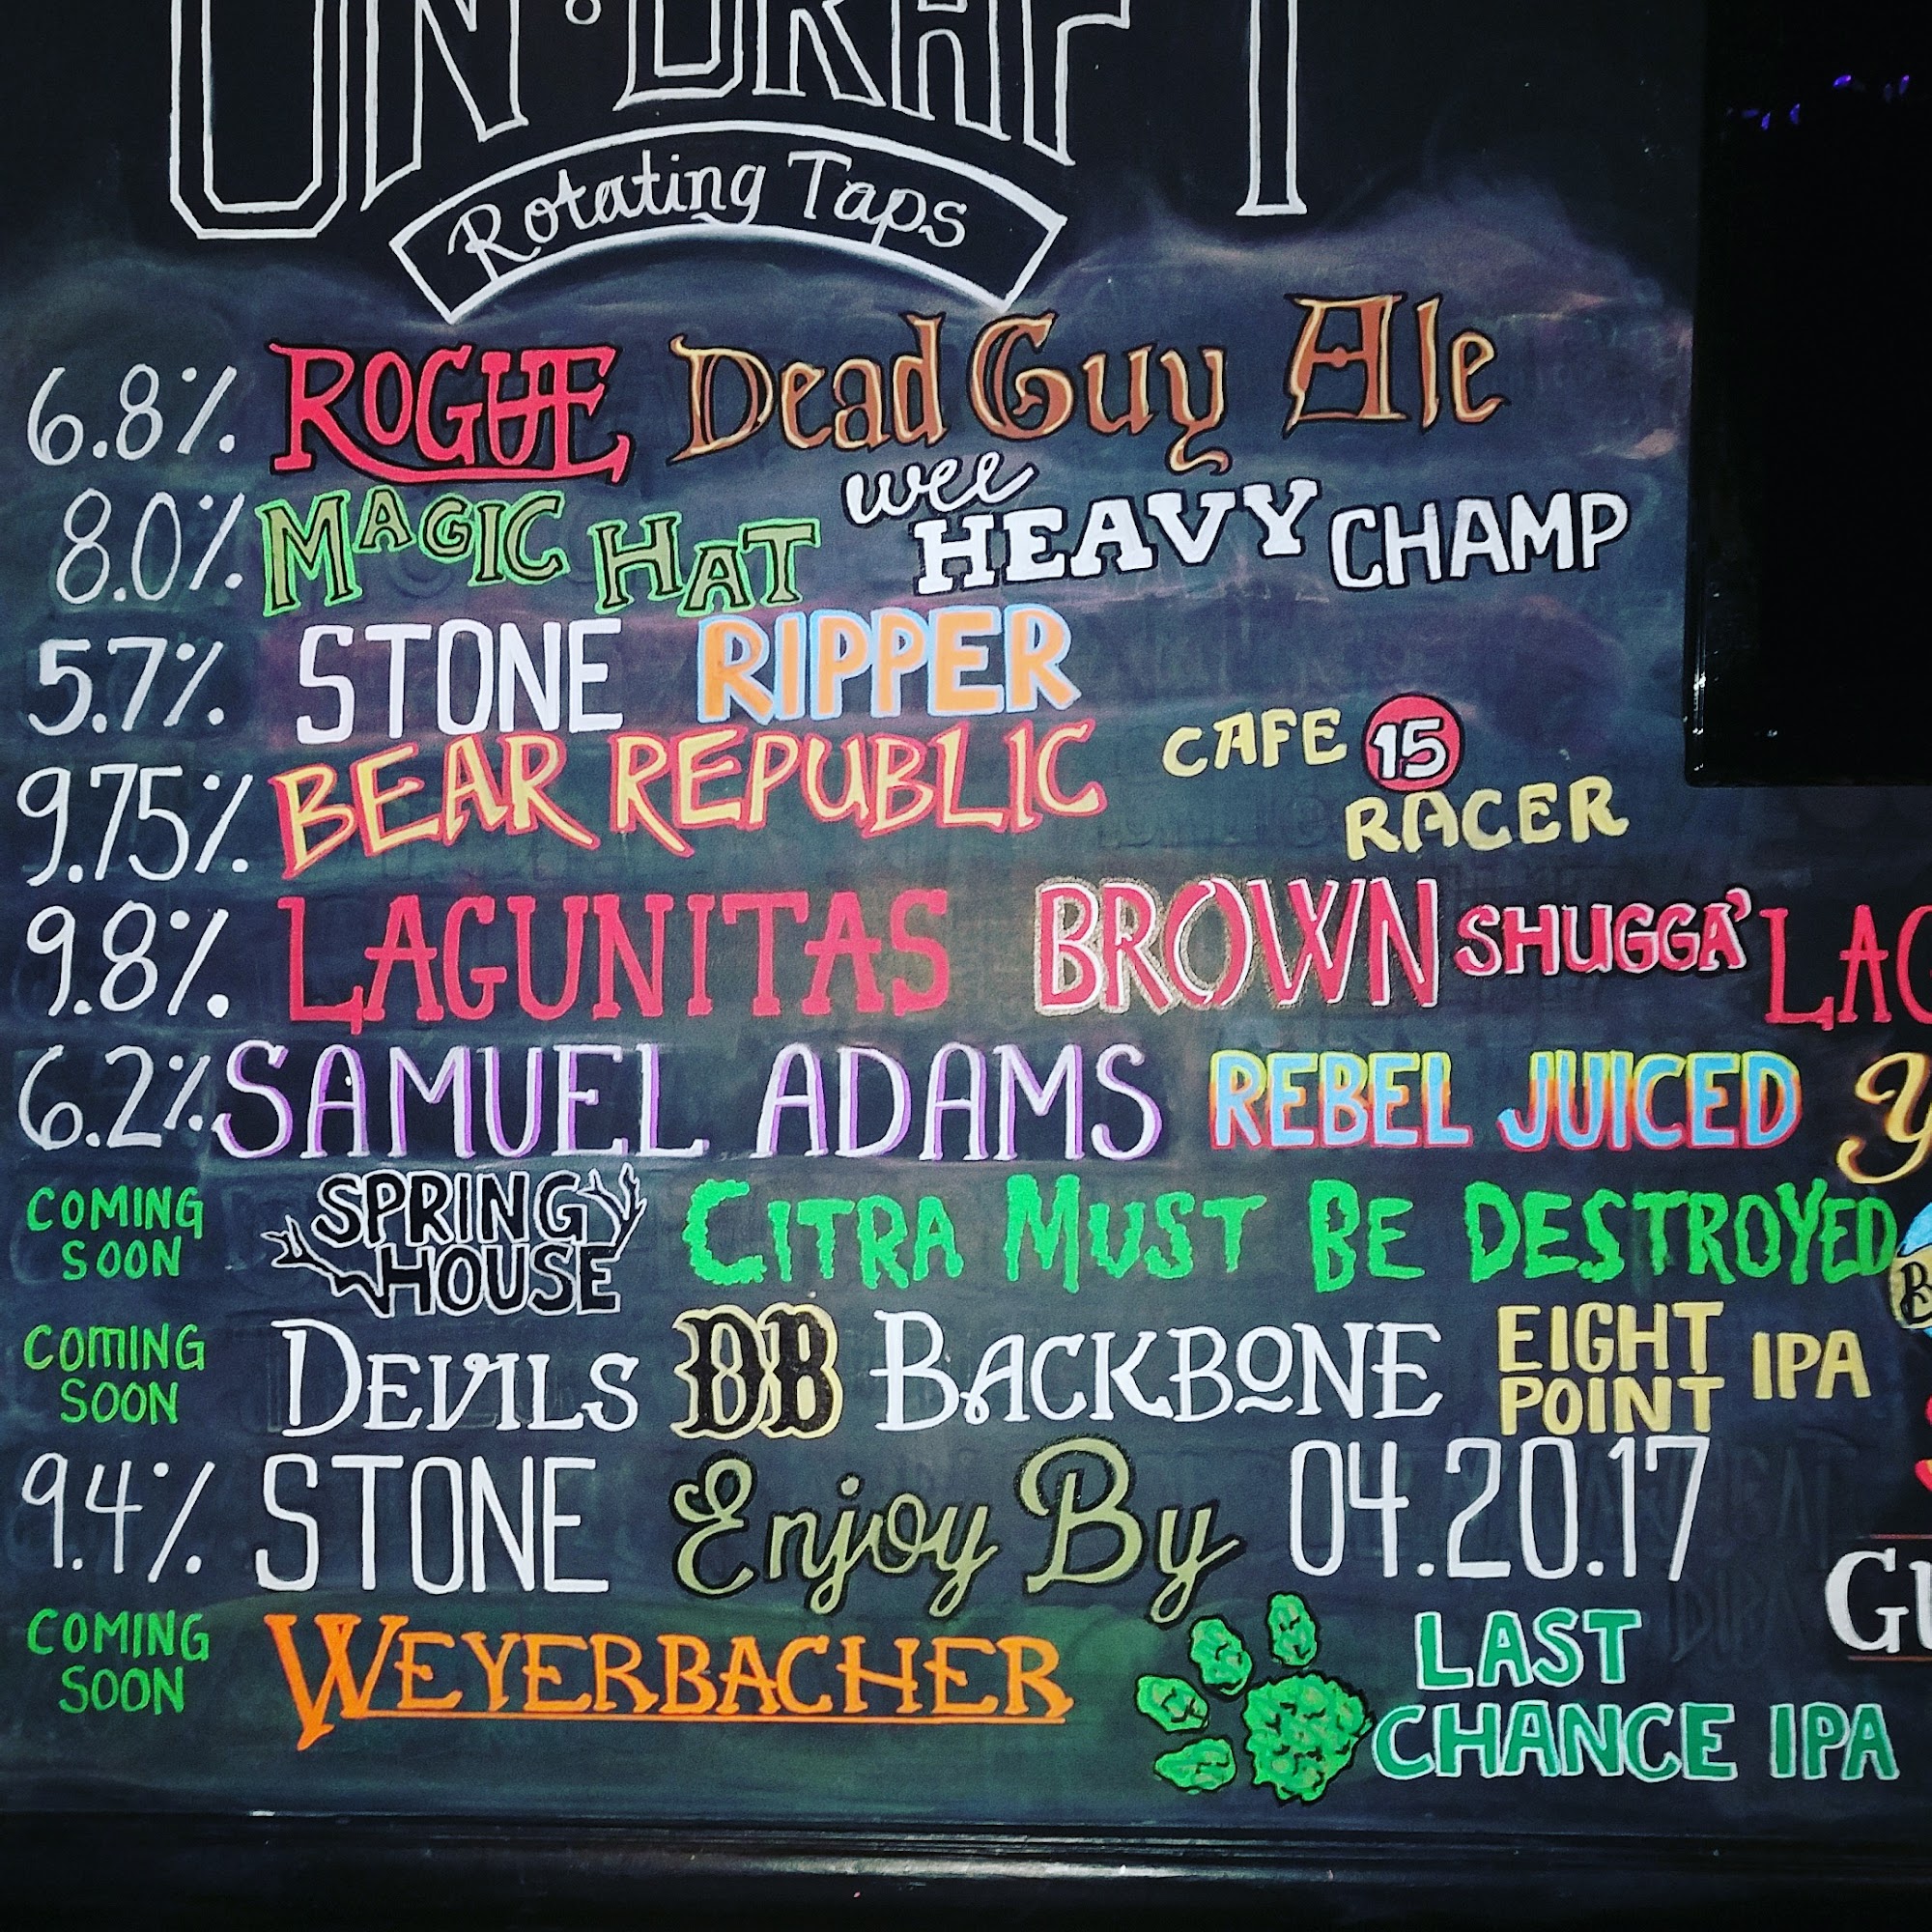 ON · DRAFT
Rotating Taps
6.8% ROGUE Dead Guy Ale
8.0% MAGIC HAT wee HEAVY CHAMP
5.7% STONE RIPPER
9.75% BEAR REPUBLIC CAFE 15 RACER
9.8% LAGUNITAS BROWN SHUGGA' LAG
6.2% SAMUEL ADAMS REBEL JUICED Y
COMING SOON SPRING HOUSE CITRA MUST BE DESTROYED
COMING SOON DEVILS DB BACKBONE EIGHT POINT IPA
9.4% STONE Enjoy By 04.20.17
COMING SOON WEYERBACHER LAST CHANCE IPA